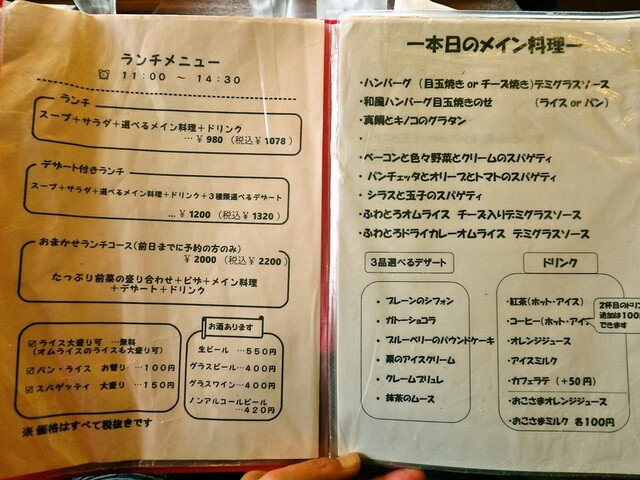 ランチメニュー
11:00 ～ 14:30
ランチ
スープ+サラダ+選べるメイン料理+ドリンク
…￥980（税込￥1078）
デザート付きランチ
スープ+サラダ+選べるメイン料理+ドリンク+3種類選べるデザート
…￥1200（税込￥1320）
おまかせランチコース(前日までに予約の方のみ)
￥2000（税込￥2200）
たっぷり前菜の盛り合わせ+ピザ+メイン料理
+デザート+ドリンク
☑ライス大盛り可 …無料
(オムライスのライスも大盛り可)
☑パン・ライス お替り …100円
☑スパゲッティ 大盛り …150円
お酒あります
生ビール …550円
グラスビール…400円
グラスワイン…400円
ノンアルコールビール
…420円
※価格はすべて税抜きです
ー本日のメイン料理ー
・ハンバーグ（目玉焼きorチーズ焼き)デミグラスソース
・和風ハンバーグ目玉焼きのせ （ライスorパン）
・真鯛とキノコのグラタン
・
・ベーコンと色々野菜とクリームのスパゲティ
・パンチェッタとオリーブとトマトのスパゲティ
・シラスと玉子のスパゲティ
・ふわとろオムライス チーズ入りデミグラスソース
・ふわとろドライカレーオムライス デミグラスソース
3品選べるデザート
・プレーンのシフォン
・ガトーショコラ
・ブルーベリーのパウンドケーキ
・栗のアイスクリーム
・クレームブリュレ
・抹茶のムース
ドリンク
・紅茶(ホット・アイス)
・コーヒー(ホット・アイス
・オレンジジュース
・アイスミルク
・カフェラテ（+50円）
・おこさまオレンジジュース
・おこさまミルク 各100円
2杯目のドリン
追加は100
できます